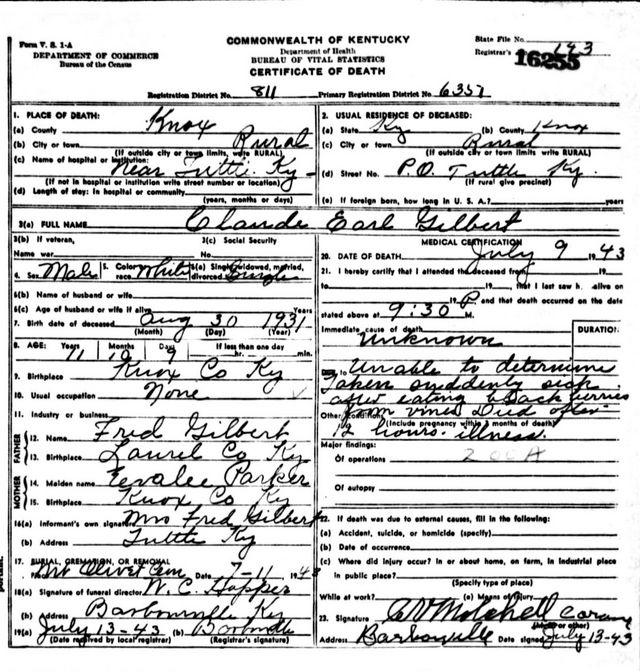 Form V. S. 1-A
DEPARTMENT OF COMMERCE
Bureau of the Census
COMMONWEALTH OF KENTUCKY
Department of Health
BUREAU OF VITAL STATISTICS
CERTIFICATE OF DEATH
State File No.
Registrar's No. 143
16255
Registration District No. 811 Primary Registration District No. 6357
1. PLACE OF DEATH:
(a) County Knox
(b) City or town Rural
(If outside city or town limits, write RURAL)
(c) Name of hospital or institution:
Near Tuttle Ky
(If not in hospital or institution write street number or location)
(d) Length of stay: In hospital or community
(years, months or days)
2. USUAL RESIDENCE OF DECEASED:
(a) State Ky (b) County Knox
(c) City or town Rural
(If outside city or town limits write RURAL)
(d) Street No. P.O. Tuttle Ky.
(If rural give precinct)
(e) If foreign born, how long in U. S. A.? years
3(a) FULL NAME Claude Earl Gilbert
3(b) If veteran, 3(c) Social Security
Name war No.
4. Sex Male 5. Color or race White 6(a) Single, widowed, married, divorced Single
6(b) Name of husband or wife
6(c) Age of husband or wife if alive Years
7. Birth date of deceased Aug 30 1931
(Month) (Day) (Year)
8. AGE: Years Months Days If less than one day
11 10 9 hr. min.
9. Birthplace Knox Co Ky
10. Usual occupation None
11. Industry or business
FATHER
12. Name Fred Gilbert
13. Birthplace Laurel Co Ky
MOTHER
14. Maiden name Evalee Parker
15. Birthplace Knox Co Ky
16(a) Informant's own signature Mrs Fred Gilbert
(b) Address Tuttle Ky
17. BURIAL, CREMATION, OR REMOVAL
Place Mt Olivet Cem Date 7-11 1943
18(a) Signature of funeral director W. C. Hopper
(b) Address Barbourville Ky
19(a) July 13-43 (b)
(Date received by local registrar) (Registrar's signature)
MEDICAL CERTIFICATION
20. DATE OF DEATH July 9 1943
21. I hereby certify that I attended the deceased from 19
to 19, that I last saw h alive on
19, and that death occurred on the date
stated above at 9:30 P M.
Immediate cause of death DURATION
Unknown
Due to Unable to determine
Taken suddenly sick
after eating blackberries
Other conditions from vines Died after
(Include pregnancy within 3 months of death)
12 hours. illness.
Major findings:
Of operations
Of autopsy
22. If death was due to external causes, fill in the following:
(a) Accident, suicide, or homicide (specify)
(b) Date of occurrence
(c) Where did injury occur? In or about home, on farm, in industrial place
in public place?
(Specify type of place)
While at work? (e) Means of injury
23. Signature Mitchell
Address Barbourville Date signed July 13-43